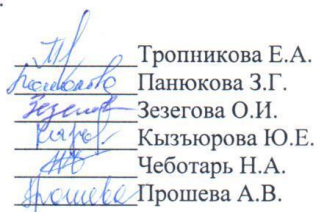 Тропникова Е.А.
Панюкова З.Г.
Зезегова О.И.
Кызъюрова Ю.Е.
Чеботарь Н.А.
Прошева А.В.